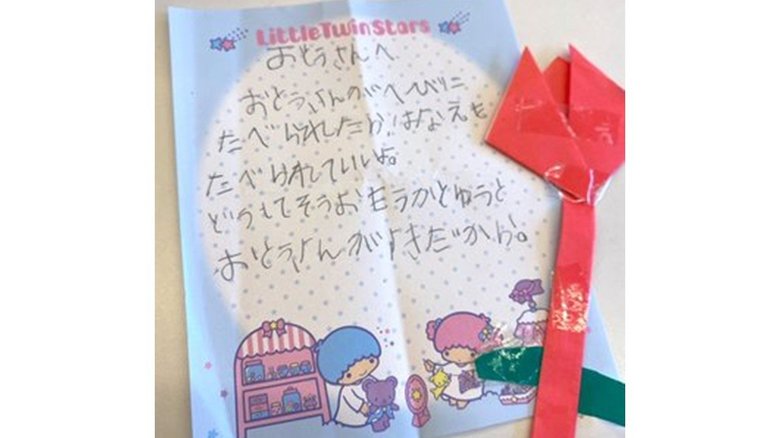 LittleTwinStars
おとうさんへ
おとうさんがへびに
たべられたらはなえも
たべられていいよ。
どうしてそうおもうかとゆうと
おとうさんがすきだから。